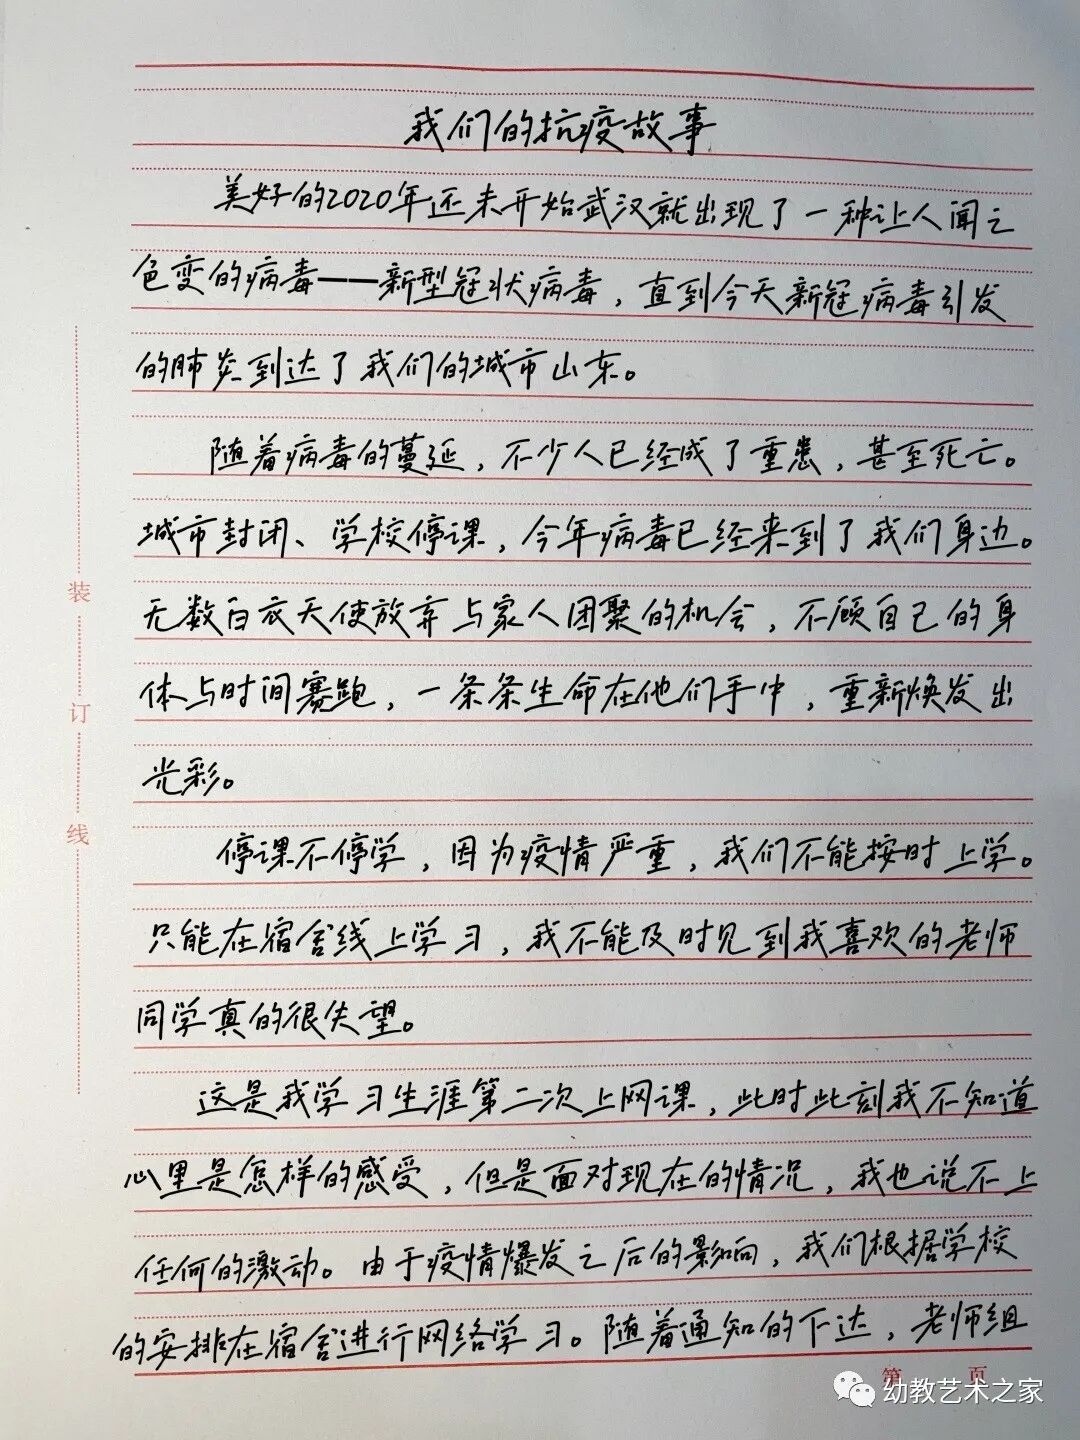 我们的抗疫故事
美好的2020年还未开始武汉就出现了一种让人闻之
色变的病毒——新型冠状病毒，直到今天新冠病毒引发
的肺炎到达了我们的城市山东。
随着病毒的蔓延，不少人已经成了重患，甚至死亡。
城市封闭、学校停课，今年病毒已经来到了我们身边。
无数白衣天使放弃与家人团聚的机会，不顾自己的身
体与时间赛跑，一条条生命在他们手中，重新焕发出
光彩。
停课不停学，因为疫情严重，我们不能按时上学。
只能在宿舍线上学习，我不能及时见到我喜欢的老师
同学真的很失望。
这是我学习生涯第二次上网课，此时此刻我不知道
心里是怎样的感受，但是面对现在的情况，我也说不上
任何的激动。由于疫情爆发之后的影响，我们根据学校
的安排在宿舍进行网络学习。随着通知的下达，老师组
装
订
线
第 页
幼教艺术之家